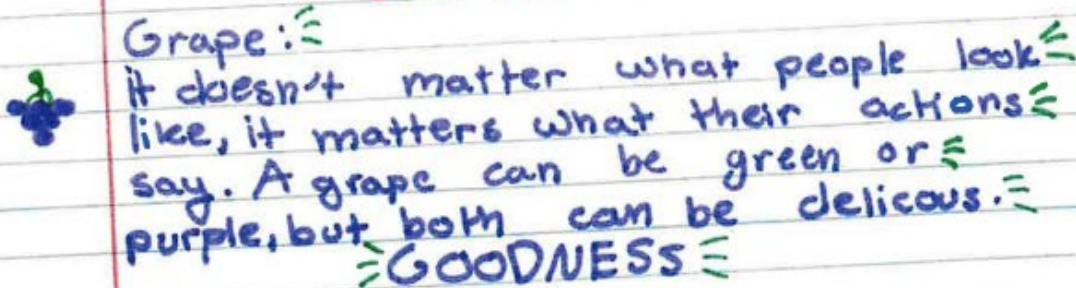 Grape:
it doesn't matter what people look
like, it matters what their actions
say. A grape can be green or
purple, but both can be delicous.
GOODNESS